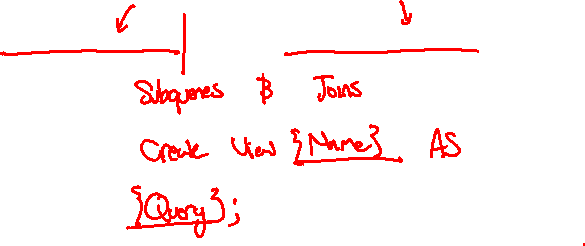 Subqueries & Joins
Create View {Name} AS
{Query};